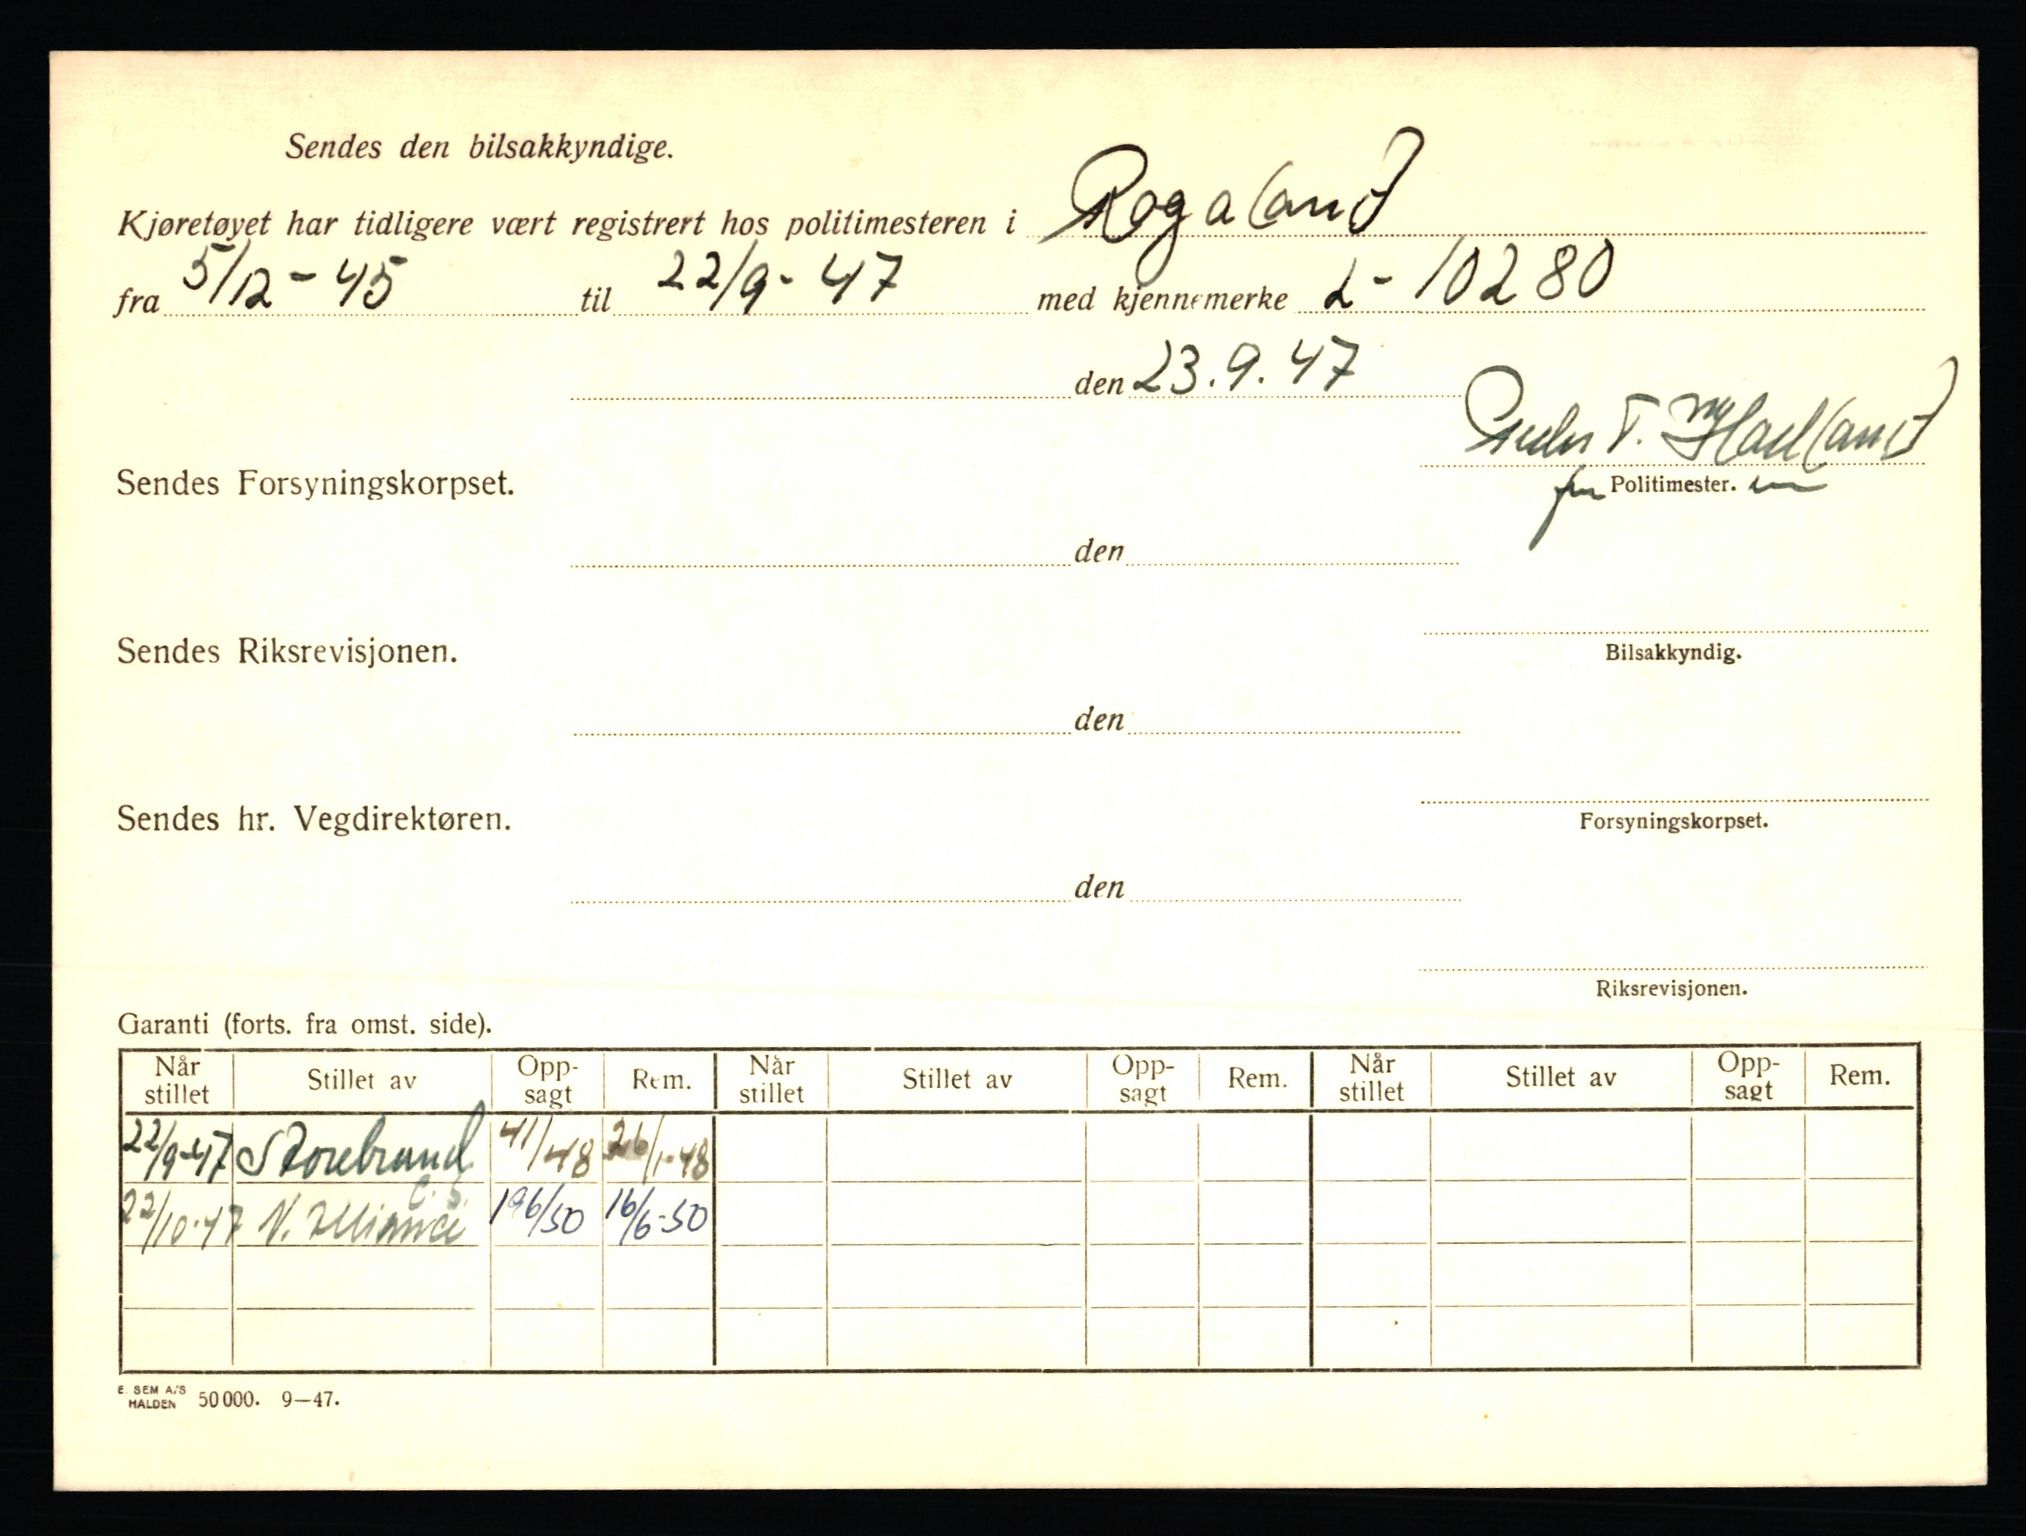 Sendes den bilsakkyndige.
Kjøretøyet har tidligere vært registrert hos politimesteren i Rogaland
fra 5/12-45 til 22/9-47 med kjennemerke L-10280
den 23.9.47
T. Hadland
Sendes Forsyningskorpset.
Politimester.
den
Sendes Riksrevisjonen.
Bilsakkyndig.
den
Sendes hr. Vegdirektøren.
Forsyningskorpset.
den
Riksrevisjonen.
Garanti (forts. fra omst. side).
Når stillet Stillet av Opp-sagt Rem. Når stillet Stillet av Opp-sagt Rem. Når stillet Stillet av Opp-sagt Rem.
22/9-47 Storebrand 41/48 26/1-48
22/10-47 N. Alliance 196/50 16/6-50
E. SEM A/S HALDEN 50000. 9—47.